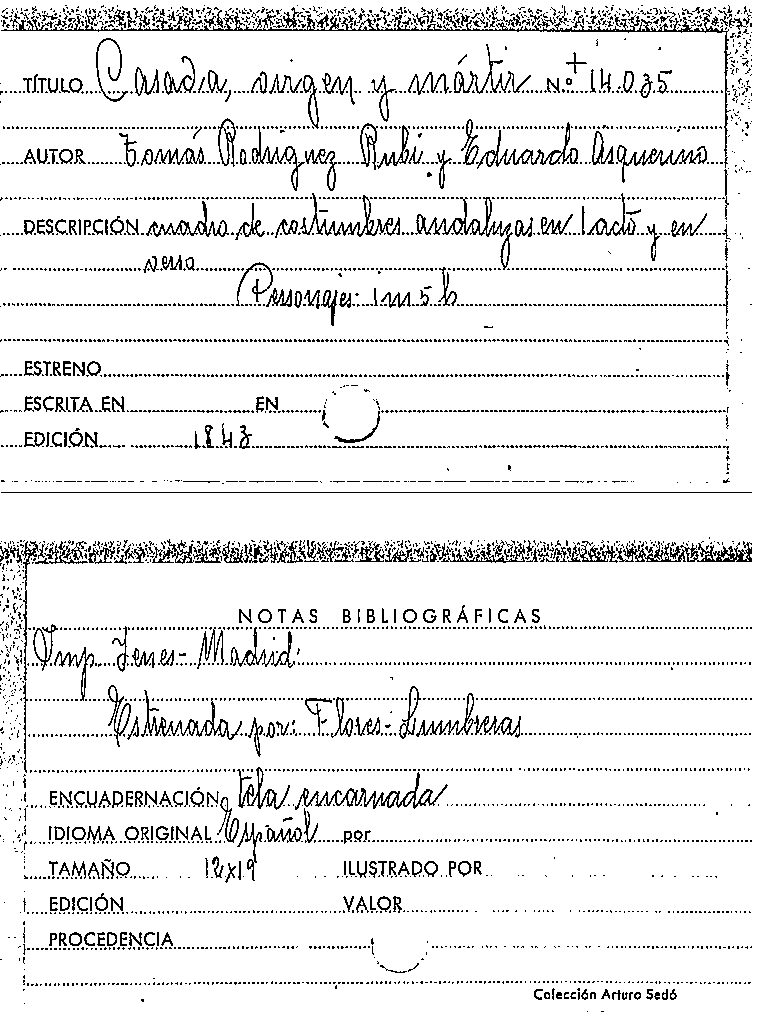 TÍTULO Casada, virgen y mártir N.º + 14.035
AUTOR Tomás Rodriguez Rubi y Eduardo Asquerino
DESCRIPCIÓN cuadro de costumbres andaluzas en 1 acto y en
verso
Personajes: 1m 5h
ESTRENO
ESCRITA EN EN
EDICIÓN 1843
NOTAS BIBLIOGRÁFICAS
Imp Yenes - Madrid.
Estrenada por: Flores - Lumbreras
ENCUADERNACIÓN tela encarnada
IDIOMA ORIGINAL Español por
TAMAÑO 12x19 ILUSTRADO POR
EDICIÓN VALOR
PROCEDENCIA
Colección Arturo Sedó